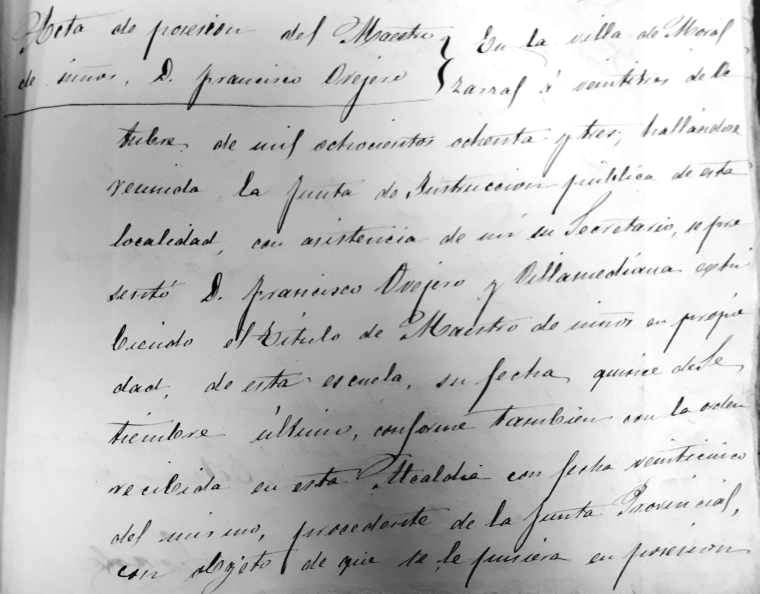 Acta de posesion del Maestro
de niños, D. Francisco Ovejero
En la villa de Moral
zarzal á veintitres de Oc
tubre de mil ochocientos ochenta y tres, hallándose
reunida la Junta de Instruccion pública de esta
localidad, con asistencia de mi su Secretario, se pre
sentó D. Francisco Ovejero y Villamediana exhi
biendo el Título de Maestro de niños en propie
dad, de esta escuela, su fecha quince de Se
tiembre último, conforme tambien con la orden
recibida en esta Alcaldia con fecha veinticinco
del mismo, procedente de la Junta Provincial,
con objeto de que se le pusiera en posesion